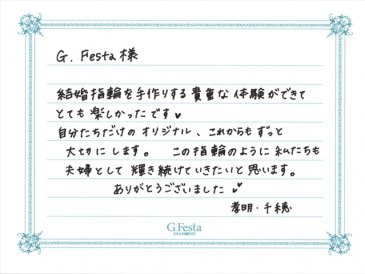 G. Festa 様
結婚指輪を手作りする貴重な体験ができて
とても楽しかったです♥
自分たちだけのオリジナル、これからもずっと
大切にします。 この指輪のように私たちも
夫婦として輝き続けていきたいと思います。
ありがとうございました♥
孝明・千穂
G.Festa
DIAMOND